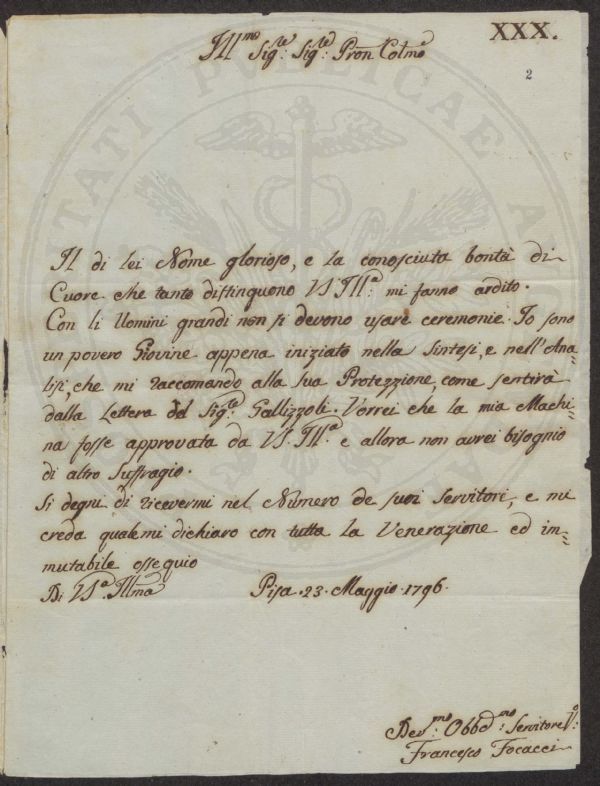 XXX.
2
Ill.mo Sig.re Sig.re Pron Colmo
Il di lei Nome glorioso, e la conosciuta bontà di
Cuore che tanto distinguono VS Ill.a: mi fanno ardito.
Con li Uomini grandi non si devono usare ceremonie. Io sono
un povero Giovine appena iniziato nella Sintesi, e nell'Ana=
lisi, che mi raccomando alla sua Protezzione, come sentirà
dalla Lettera del Sig.re Gallizzoli. Vorrei che la mia Machi=
na fosse approvata da VS. Ill.a e allora non avrei bisognio
di altro Suffragio.
Si degni di ricevermi nel Numero de suoi Servitori, e mi
creda quale mi dichiaro con tutta la Venerazione ed im=
mutabile ossequio
Di VS.a Illma
Pisa .23. Maggio .1796.
Dev.mo: Obbd.mo: Servitore V.o:
Francesco Focacci
PUBLICAE